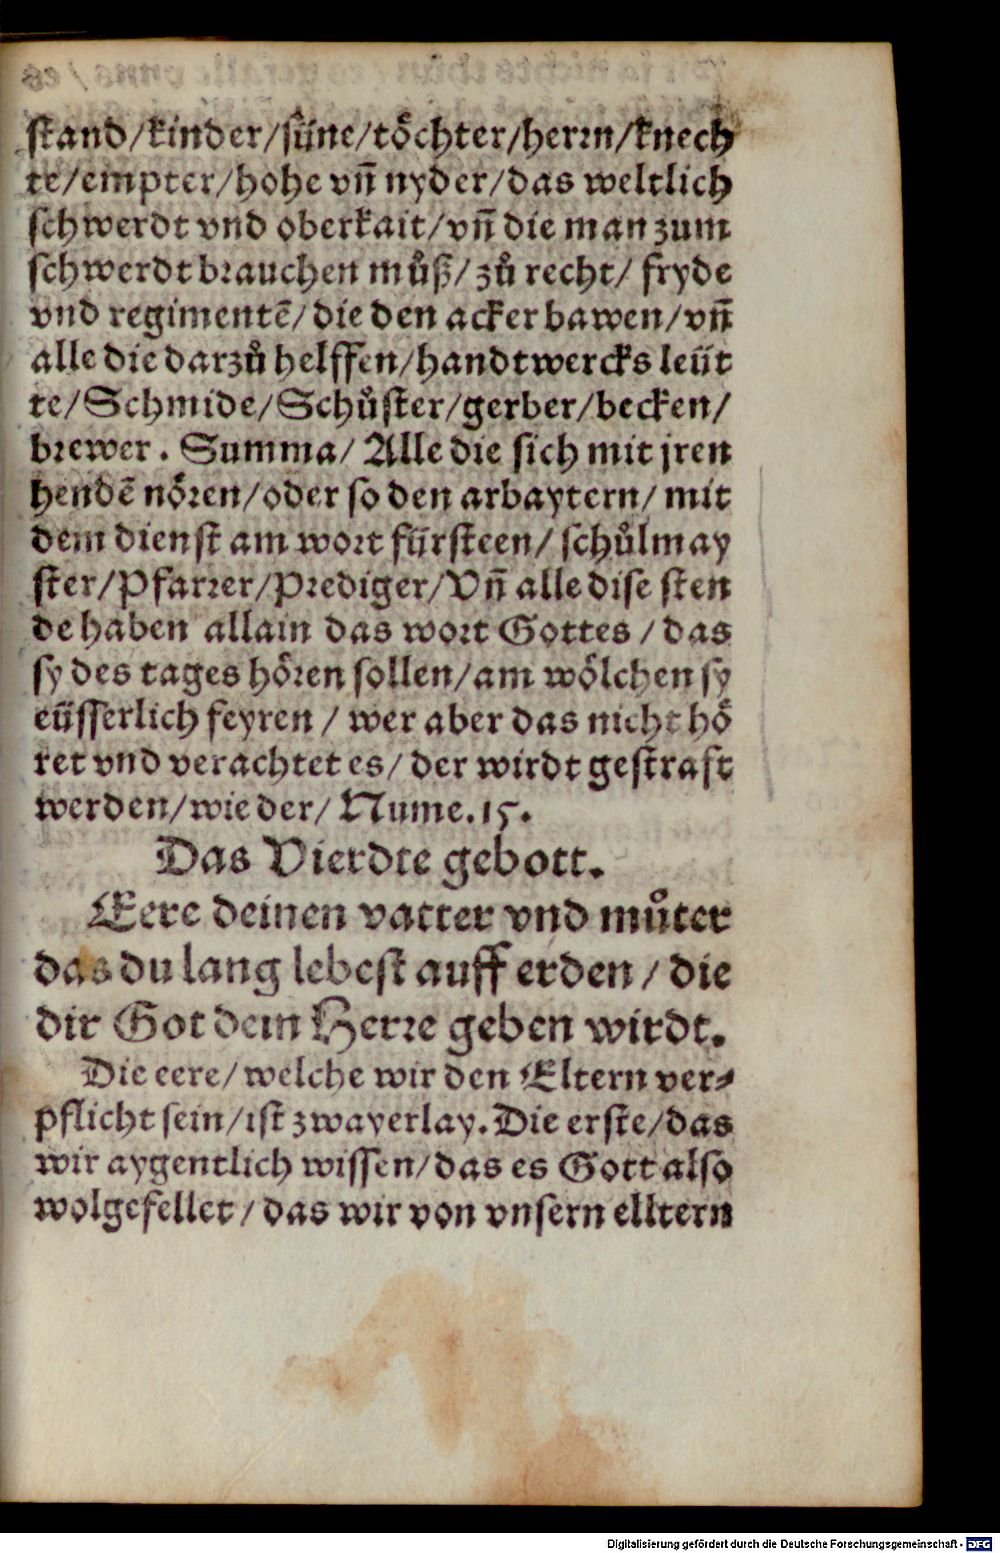 stand/kinder/süne/toͤchter/herrn/knech
te/empter/hohe vn̄ nyder/das weltlich
schwerdt vnd oberkait/vn̄ die man zum
schwerdt brauchen muͦß/zuͦ recht/ fryde
vnd regimentē/die den acker bawen/vn̄
alle die darzuͦ helffen/handtwercks leüt
te/Schmide/Schuͦster/gerber/becken/
brewer. Summa/ Alle die sich mit jren
hendē noͤren/oder so den arbaytern/ mit
dem dienst am wort fürsteen/ schuͦlmay
ster/Pfarrer/Prediger/Vn̄ alle dise sten
de haben allain das wort Gottes / das
sy des tages hoͤren sollen/am woͤlchen sy
eüsserlich feyren / wer aber das nicht hoͤ
ret vnd verachtet es/ der wirdt gestraft
werden/wie der/ Nume.15.
Das Vierdte gebott.
Eere deinen vatter vnd muͦter
das du lang lebest auff erden / die
dir Got dein Herre geben wirdt.
Die eere/welche wir den Eltern ver⸗
pflicht sein/ist zwayerlay. Die erste/das
wir aygentlich wissen/das es Gott also
wolgefellet/das wir von vnsern elltern
Digitalisierung gefördert durch die Deutsche Forschungsgemeinschaft - DFG